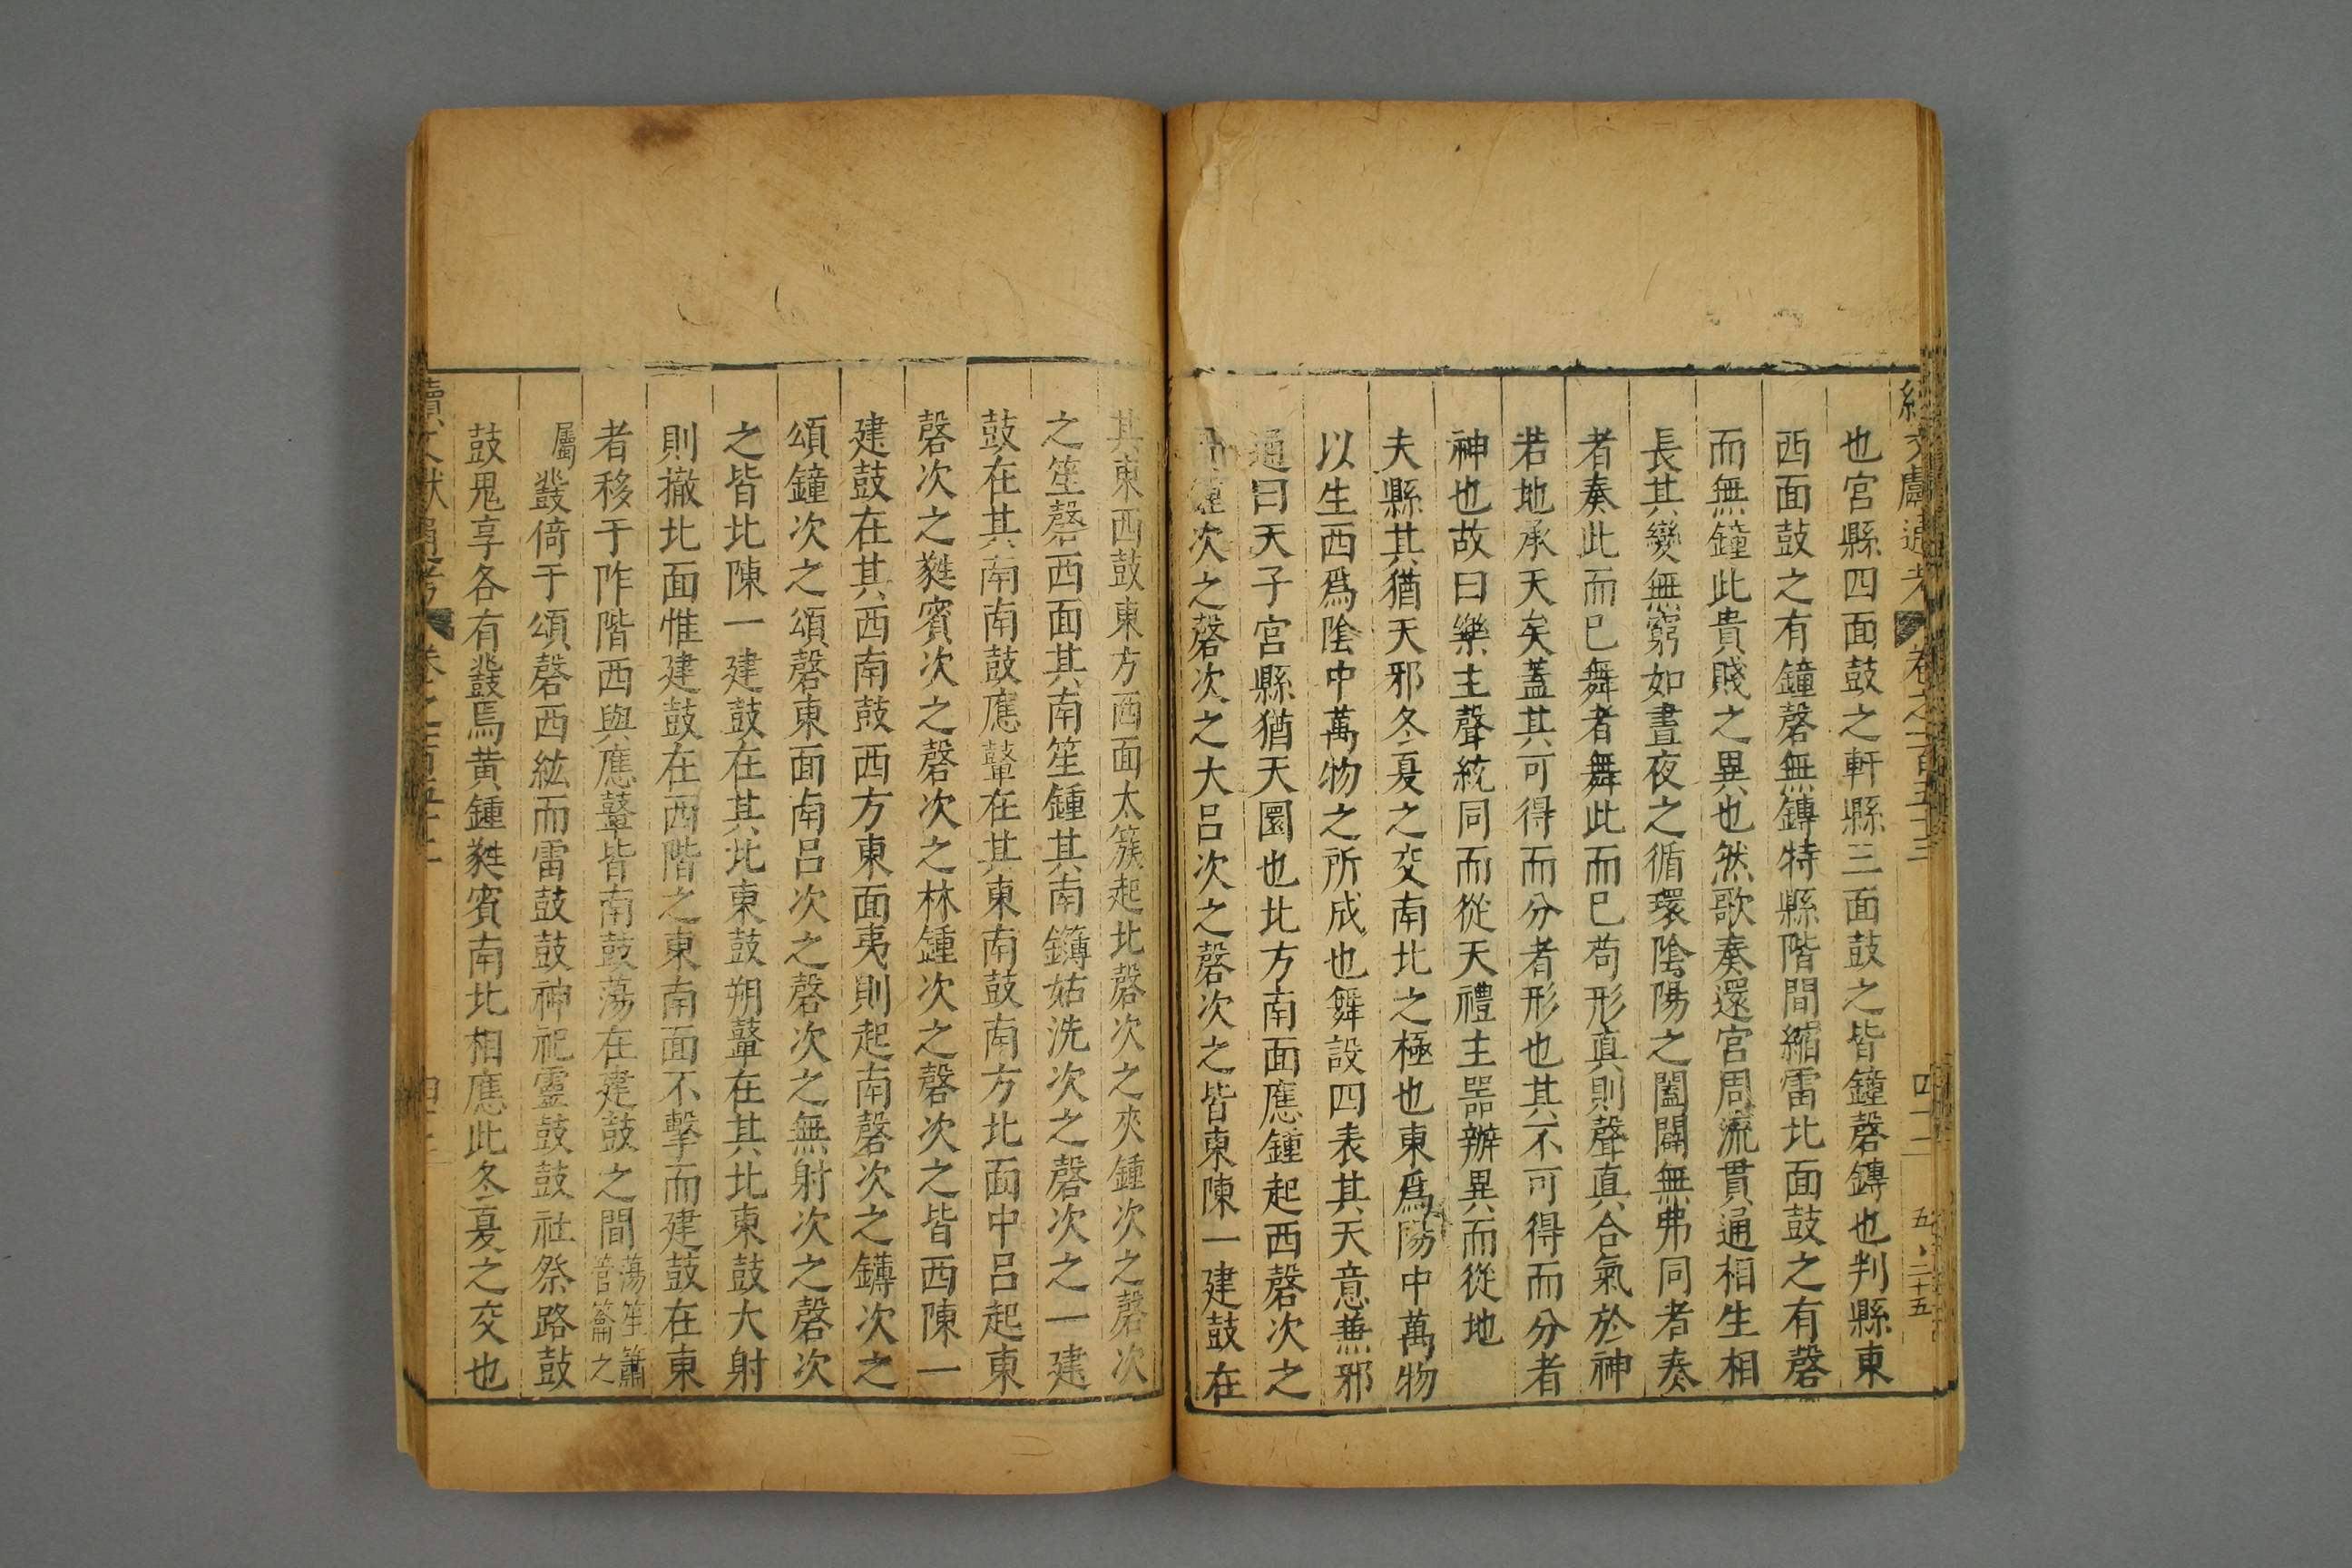 續文獻通考 卷之一百五十三 四十二 五、二十五
也宮縣四面鼓之軒縣三面鼓之皆鐘磬鏄也判縣東
西面鼓之有鐘磬無鏄特縣階間縮霤北面鼓之有磬
而無鐘此貴賤之異也然歌奏還宮周流貫通相生相
長其變無窮如晝夜之循環陰陽之闔闢無弗同者奏
者奏此而已舞者舞此而已苟形真則聲真合氣於神
若地承天矣蓋其可得而分者形也其不可得而分者
神也故曰樂主聲統同而從天禮主器辦異而從地
夫縣其猶天邪冬夏之交南北之極也東爲陽中萬物
以生西爲陰中萬物之所成也舞設四表其天意兼邪
通曰天子宮縣猶天圜也北方南面應鍾起西磬次之
鍾次之磬次之大呂次之磬次之皆東陳一建鼓在
其東西鼓東方西面太簇起北磬次之夾鍾次之磬次
之笙磬西面其南笙鍾其南鑮姑洗次之磬次之一建
鼓在其南南鼓應鼙在其東南鼓南方北面中呂起東
磬次之蕤賓次之磬次之林鍾次之磬次之皆西陳一
建鼓在其西南鼓西方東面夷則起南磬次之鑮次之
頌鐘次之頌磬東面南呂次之磬次之無射次之磬次
之皆北陳一建鼓在其北東鼓朔鼙在其北東鼓大射
則撤北面惟建鼓在西階之東南面不擊而建鼓在東
者移于阼階西與應鼙皆南鼓蕩在建鼓之間蕩笙簫管籥之
屬鼗倚于頌磬西紘而雷鼓鼓神祀靈鼓鼓社祭路鼓
鼓鬼享各有鼗焉黄鍾蕤賓南北相應此冬夏之交也
續文獻通考 卷之一百五十三 四十二